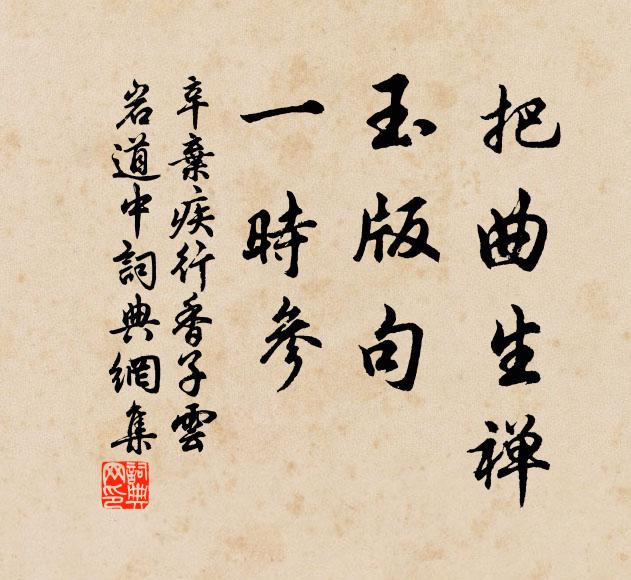 把曲生禅
玉版句
一時參
辛棄疾行香子雲
岩道中詞典網集
詞典
网印